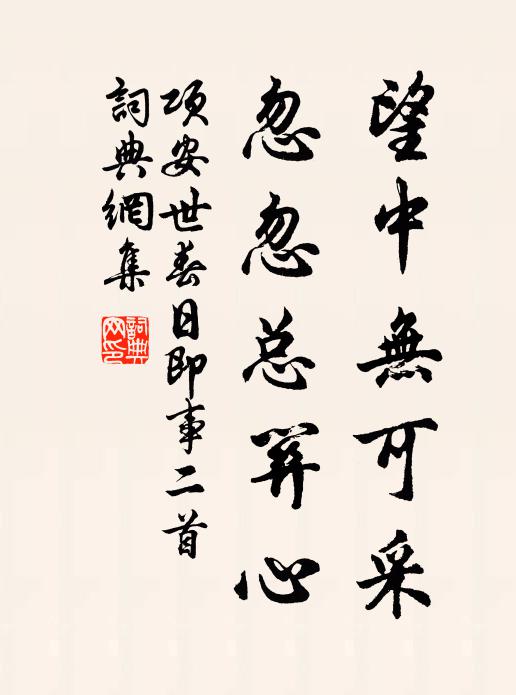 望中無可采
忽忽总關心
項安世春日即事二首
詞典網集
詞典网印